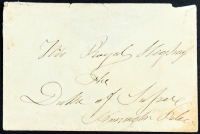 His Royal Highness
The
Duke of Sussex
Kensington Palace